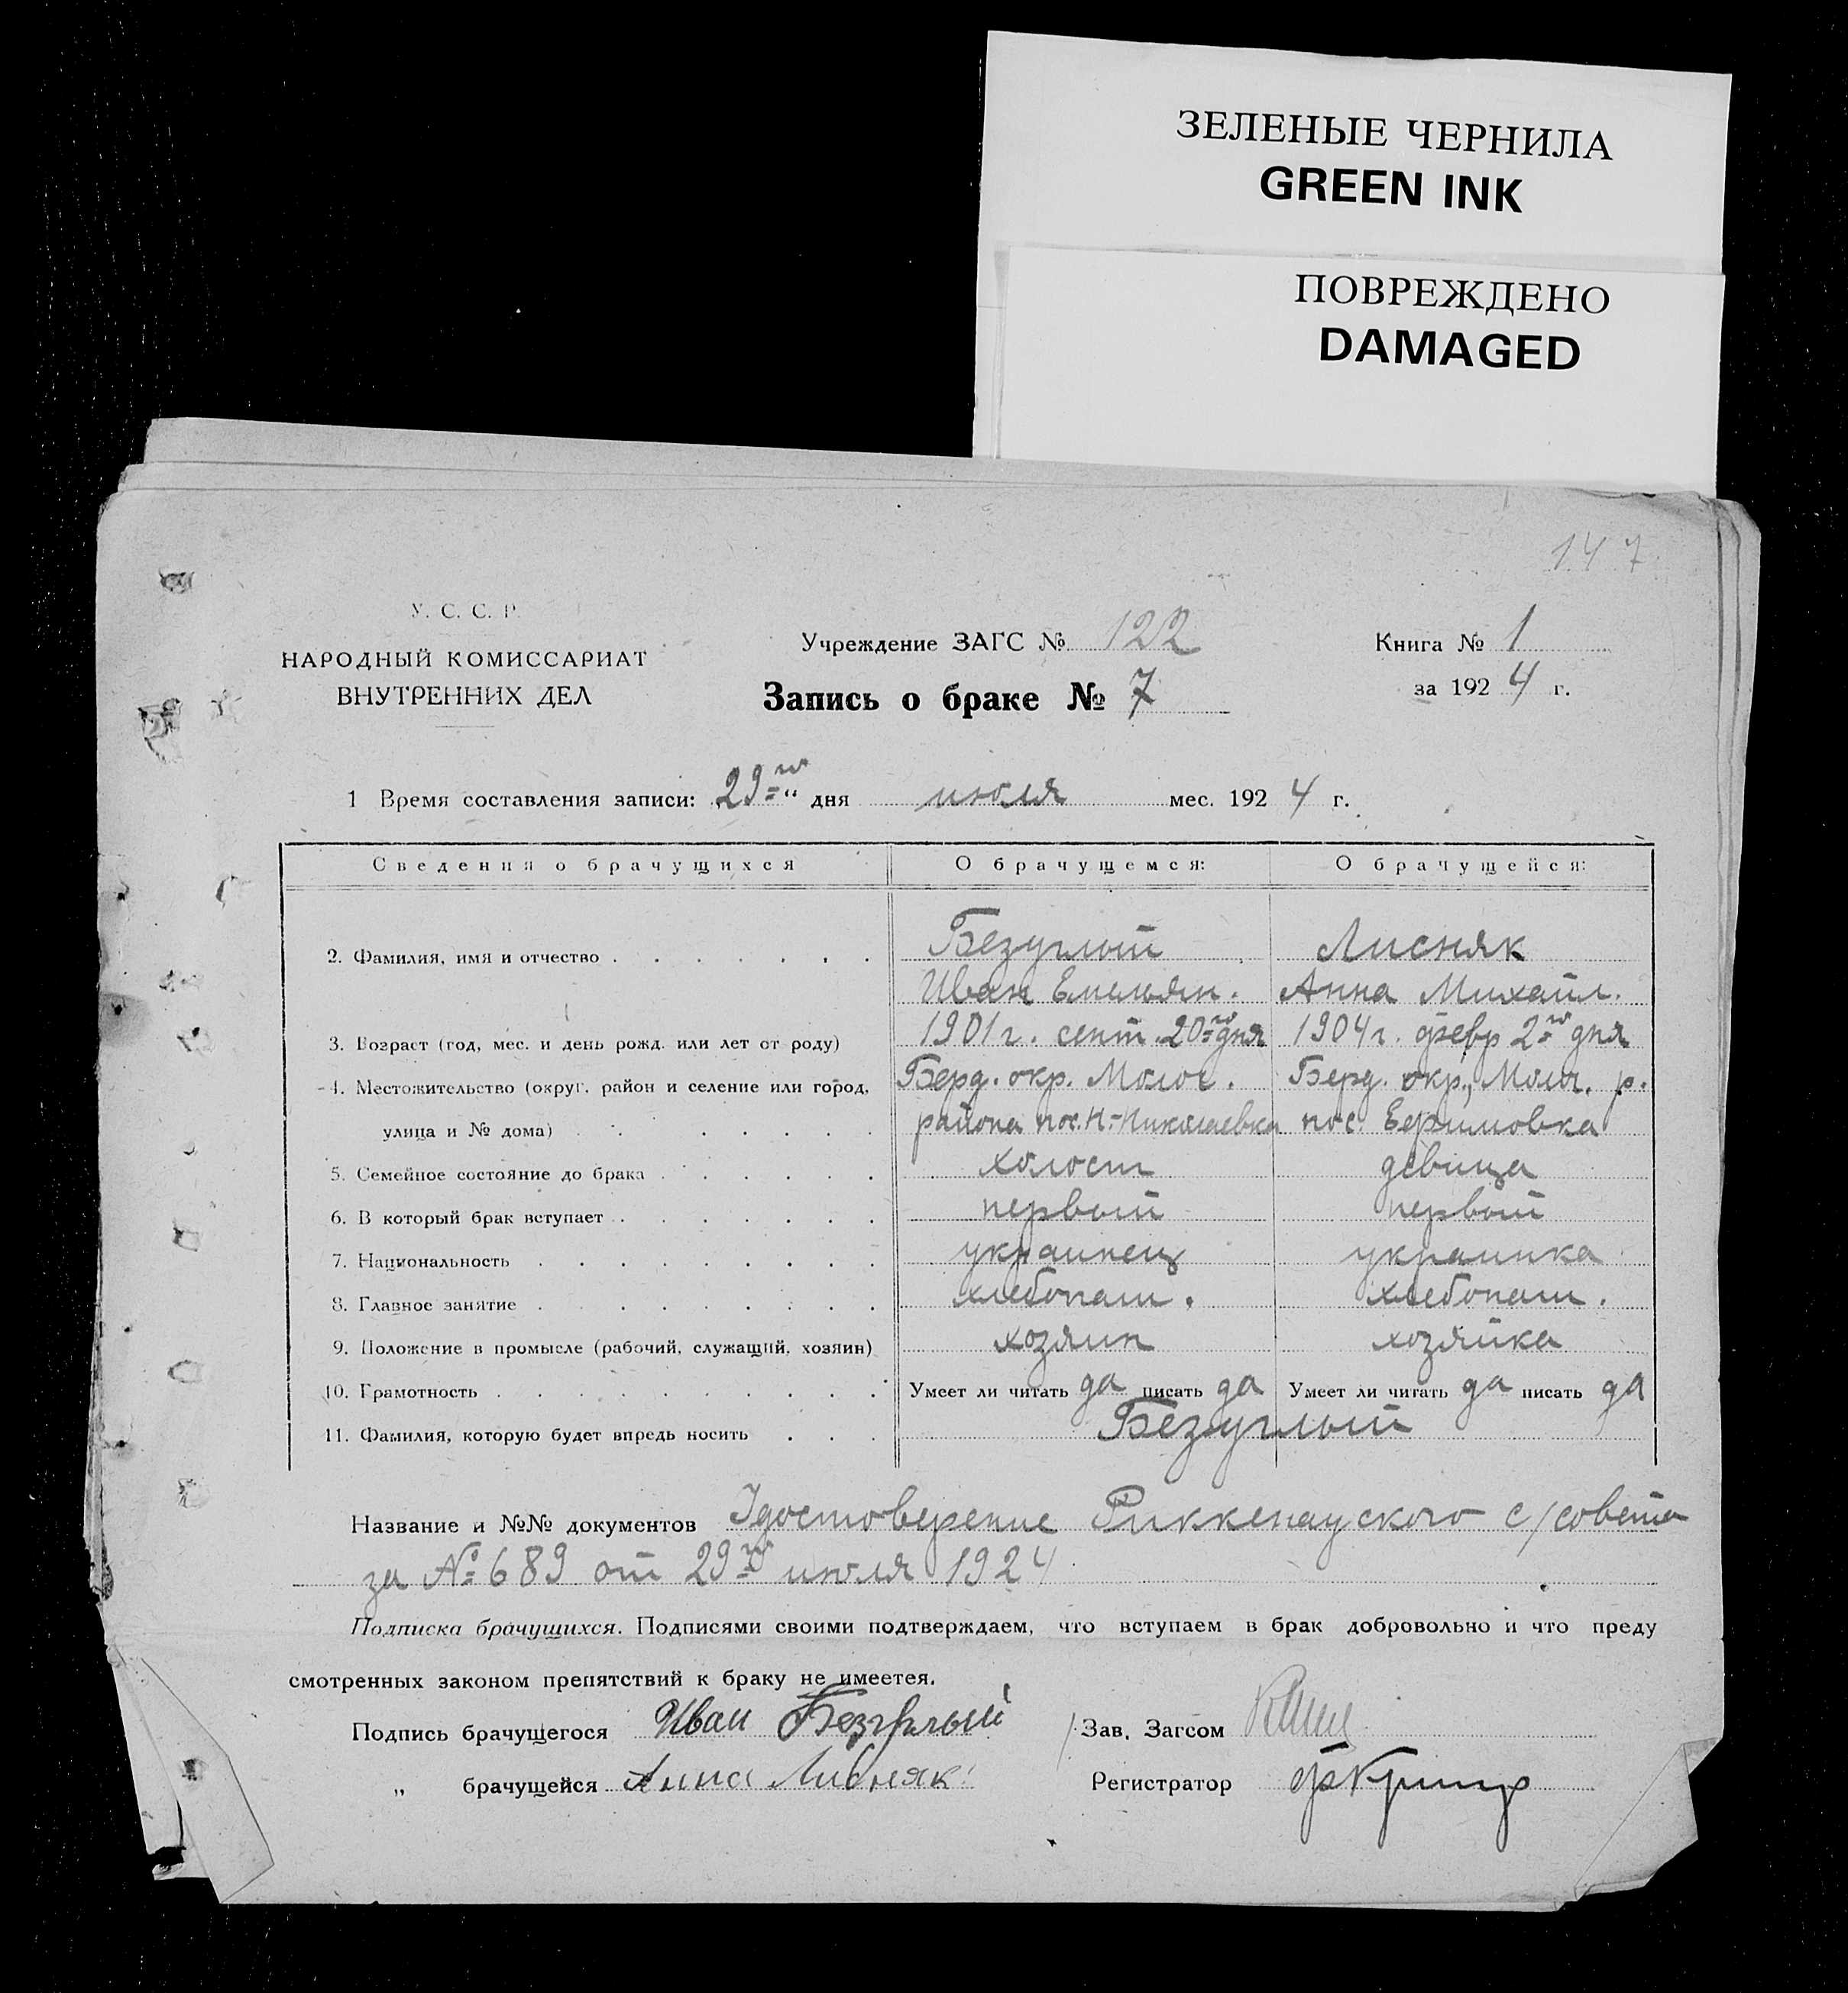 ЗЕЛЕНЫЕ ЧЕРНИЛА
GREEN INK
ПОВРЕЖДЕНО
DAMAGED
147
У. С. С. Р.
НАРОДНЫЙ КОМИССАРИАТ
ВНУТРЕННИХ ДЕЛ
Учреждение ЗАГС № 122
Книга № 1
Запись о браке № 7
за 1924 г.
1 Время составления записи: 29го дня июля мес. 1924 г.
Сведения о брачущихся О брачущемся: О брачущейся:
2. Фамилия, имя и отчество Безуглый Лисняк
Иван Емельян. Анна Михайл.
3. Возраст (год, мес. и день рожд. или лет от роду) 1901 г. сент. 20го дня 1904 г. февр 2го дня
4. Местожительство (округ, район и селение или город, Берд. окр. Молоч. Берд. окр., Молоч. р.
улица и № дома) района пос. Н-Николаевка пос.
5. Семейное состояние до брака холост девица
6. В который брак вступает первый первый
7. Национальность украинец украинка
8. Главное занятие хлебопаш. хлебопаш.
9. Положение в промысле (рабочий, служащий, хозяин) хозяин хозяйка
10. Грамотность Умеет ли читать да писать да Умеет ли читать да писать да
11. Фамилия, которую будет впредь носить Безуглый
Название и №№ документов Удостоверение Риккенауского с/совета
за № 689 от 29го июля 1924
Подписка брачущихся. Подписями своими подтверждаем, что вступаем в брак добровольно и что преду
смотренных законом препятствий к браку не имеетея.
Подпись брачущегося Иван Безуглый Зав. Загсом
„ брачущейся Анна Лисняк Регистратор